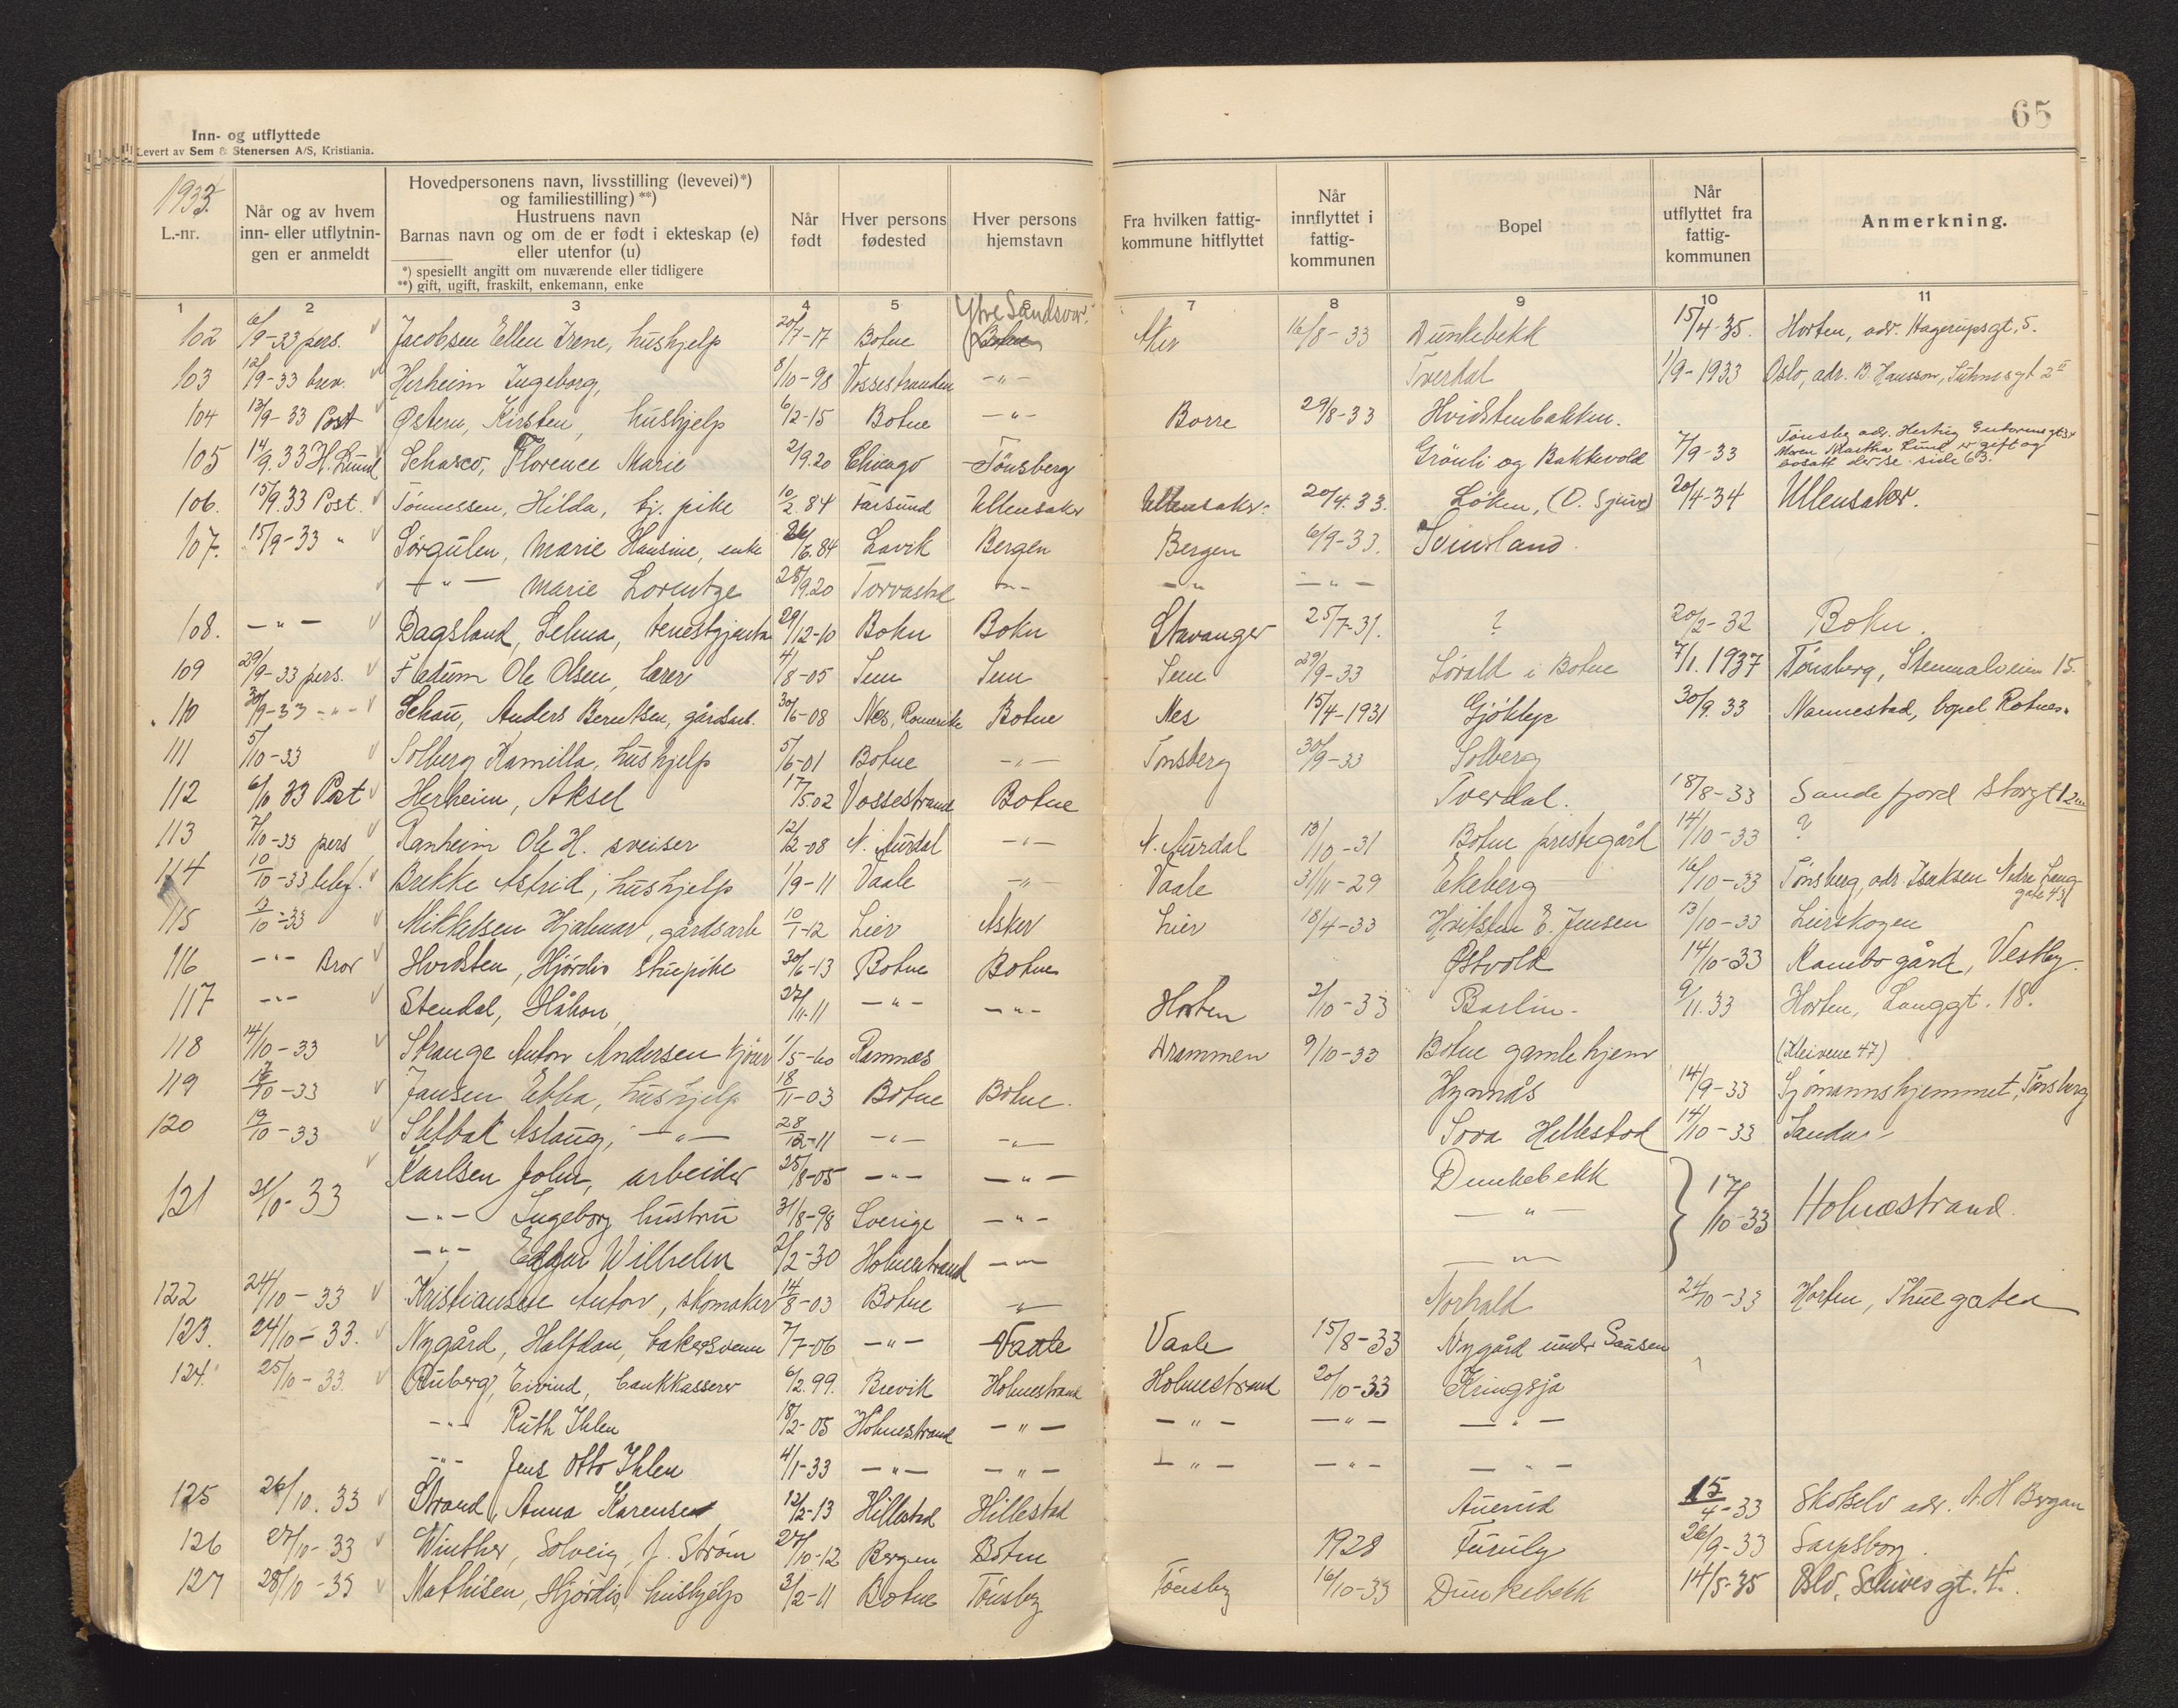 65
Inn- og utflyttede
Levert av Sem & Stenersen A/S, Kristiania.
1933.
L.-nr.
Når og av hvem inn- eller utflytningen er anmeldt
Hovedpersonens navn, livsstilling (levevei)*)
og familiestilling)**)
Hustruens navn
Barnas navn og om de er født i ekteskap (e)
eller utenfor (u)
*) spesiellt angitt om nuværende eller tidligere
**) gift, ugift, fraskilt, enkemann, enke
Når født
Hver persons fødested
Hver persons hjemstavn
Fra hvilken fattigkommune hitflyttet
Når innflyttet i fattigkommunen
Bopel
Når utflyttet fra fattigkommunen
Anmerkning.
1 2 3 4 5 6 7 8 9 10 11
102 6/9-33 pers. Jacobsen Ellen Irene, hushjelp 20/7-17 Botne Ytre Sandsvær. Botne Aker 16/8-33 Dunkebekk 15/4-35. Horten, adr. Hagerupsgt. 5.
103 12/9-33 brev. Herheim Ingeborg, 8/10-98 Vossestranden -"- Tverdal 1/9-1933 Oslo, adr. B. Hansson,
104 13/9-33 Post Østern, Kirsten, hushjelp 6/2-15 Botne -"- Borre 29/8-33 Hvidstenbakken.
105 14/9.33 H. Lund Schasco, Florence Marie 2/9.20 Chicago Tönsberg Grönli og Bakkevold 7/9-33 Tönsbg adr. Hertug Guttormsgt 34 Moren Martha Lund er gift og bosatt der se side 63.
106. 15/9.33 Post. Tönnessen, Hilda, tj. pike 10/2.84 Farsund Ullensaker Ullensaker 20/4.33. Løken, (O. Gjure) 20/4-34 Ullensaker.
107. 15/9-33 " Sörgulen, Marie Hansine, enke 26/6.84 Lavik Bergen Bergen 6/9-33. Svinsland.
-"- Marie Lorentze 28/9.20 Torvastad -"- -"- -"-
108. -"- Dagsland, Selma, tenestgjenta 29/12-10 Bokn Bokn Stavanger 25/7-31. ? 20/2-32 Bokn.
109 29/9-33 pers. Flatum Ole Olsen, lærer 4/8-05 Sem Sem Sem 29/9-33 Lövald i Botne 7/1.1937 Tönsberg, 15.
110 30/9-33 -"- Schau, Anders Berntsen, gårdsarb. 30/6-08 Nes, Romerike Botne Nes 15/4-1931 Gjökleje 30/9.33 Nannestad, bopel Rotnes.
111 5/10-33 Solberg Kamilla, hushjelp 5/6-01 Botne -"- Tönsberg 30/9-33 Solberg
112 6/10 33 Post Herheim, Aksel 17/5.02 Vossestrand Botne Tverdal. 18/8-33 Sandefjord Storgt 12
113 7/10-33 pers Ranheim Ole H. sveiser 12/2-08 N. Aurdal -"- N. Aurdal 13/10-31 Botne prestegård 14/10-33 ?
114 10/10-33 telef. Brekke Astrid, hushjelp 1/9-11 Vaale -"- Vaale 31/11-29 Ekeberg 16/10-33 Tönsberg, adr. Isaksen Nedre Langgate 43
115 12/10-33 Mikkelsen Hjalmar, gårdsarb 10/1-12 Lier Asker Lier 18/4-33 Hvitsten E. Jensen 13/10-33 Leirskogen
116 -"- Bror Hvidsten, Hjördis stuepike 30/6-13 Botne Botne Østvold 14/10-33 Kambo gård, Vestby.
117 -"- Stendal, Håkon, 27/11-11 -"- -"- Horten 2/10-33 Barlin- 9/11.33 Horten, Langgt. 18.
118 14/10-33 Strange Anton Andersen 1/5-60 Ramnes Drammen 9/10-33 Botne gamlehjem (Kleivene 47)
119 12/10-33 Jansen Ebba, hushjelp 18/11-03 Botne Botne. Hynnås 14/9-33 Sjömannshjemmet, Tönsberg
120 12/10-33 Aslaug, -"- 28/12-11 -"- -"- Sora Hellestad 14/10-33 Sande
121 21/10-33 Karlsen John, arbeider 25/8-05 -"- -"- Dunkebekk 17/10-33 Holmestrand.
-"- Ingeborg hustru 31/8-98 Sverige -"- -"-
-"- Edgar Wilhelm 2/2-30 Holmestrand -"- -"-
122 24/10-33 Kristiansen Anton, skomaker 14/8-03 Botne -"- Norhald 24/10-33 Horten, Thuegaten
123. 24/10-33. Nygård, Halfdan, bakersvenn 7/7-06 -"- Vaale Vaale 15/8-33 Nygård under Sausen
124. 25/10-33. Ruberg, Eivind, bankkasserer 6/2.99. Brevik Holmestrand Holmestrand 20/10-33 Kringsjå
-"- Ruth Ihlen 18/2-05 Holmestrand -"- -"- -"- -"-
-"- Jens Otto Ihlen 4/1-33 -"- -"- -"- -"- -"-
125 26/10.33 Strand, Anna Karensen 12/2-13 Hillestad Hillestad Auerud 15/4-33 Skotselv adr. A. H. Bergan
126 27/10-33 Winther, Solveig, f. Ström 27/10-12 Bergen Botne 1928 Furuly 26/9-33 Sarpsborg.
127 28/10-33 Mathisen, Hjördis, hushjelp 3/2-11 Botne Tönsbg Tönsbg 16/10-33 Dunkebekk 14/5-35 Oslo, Schives gt. 4.